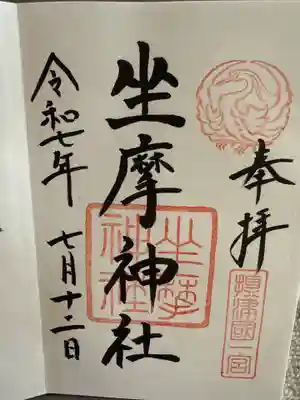 奉拝
摂津國一宮
坐摩神社
坐摩神社
令和七年 七月十二日